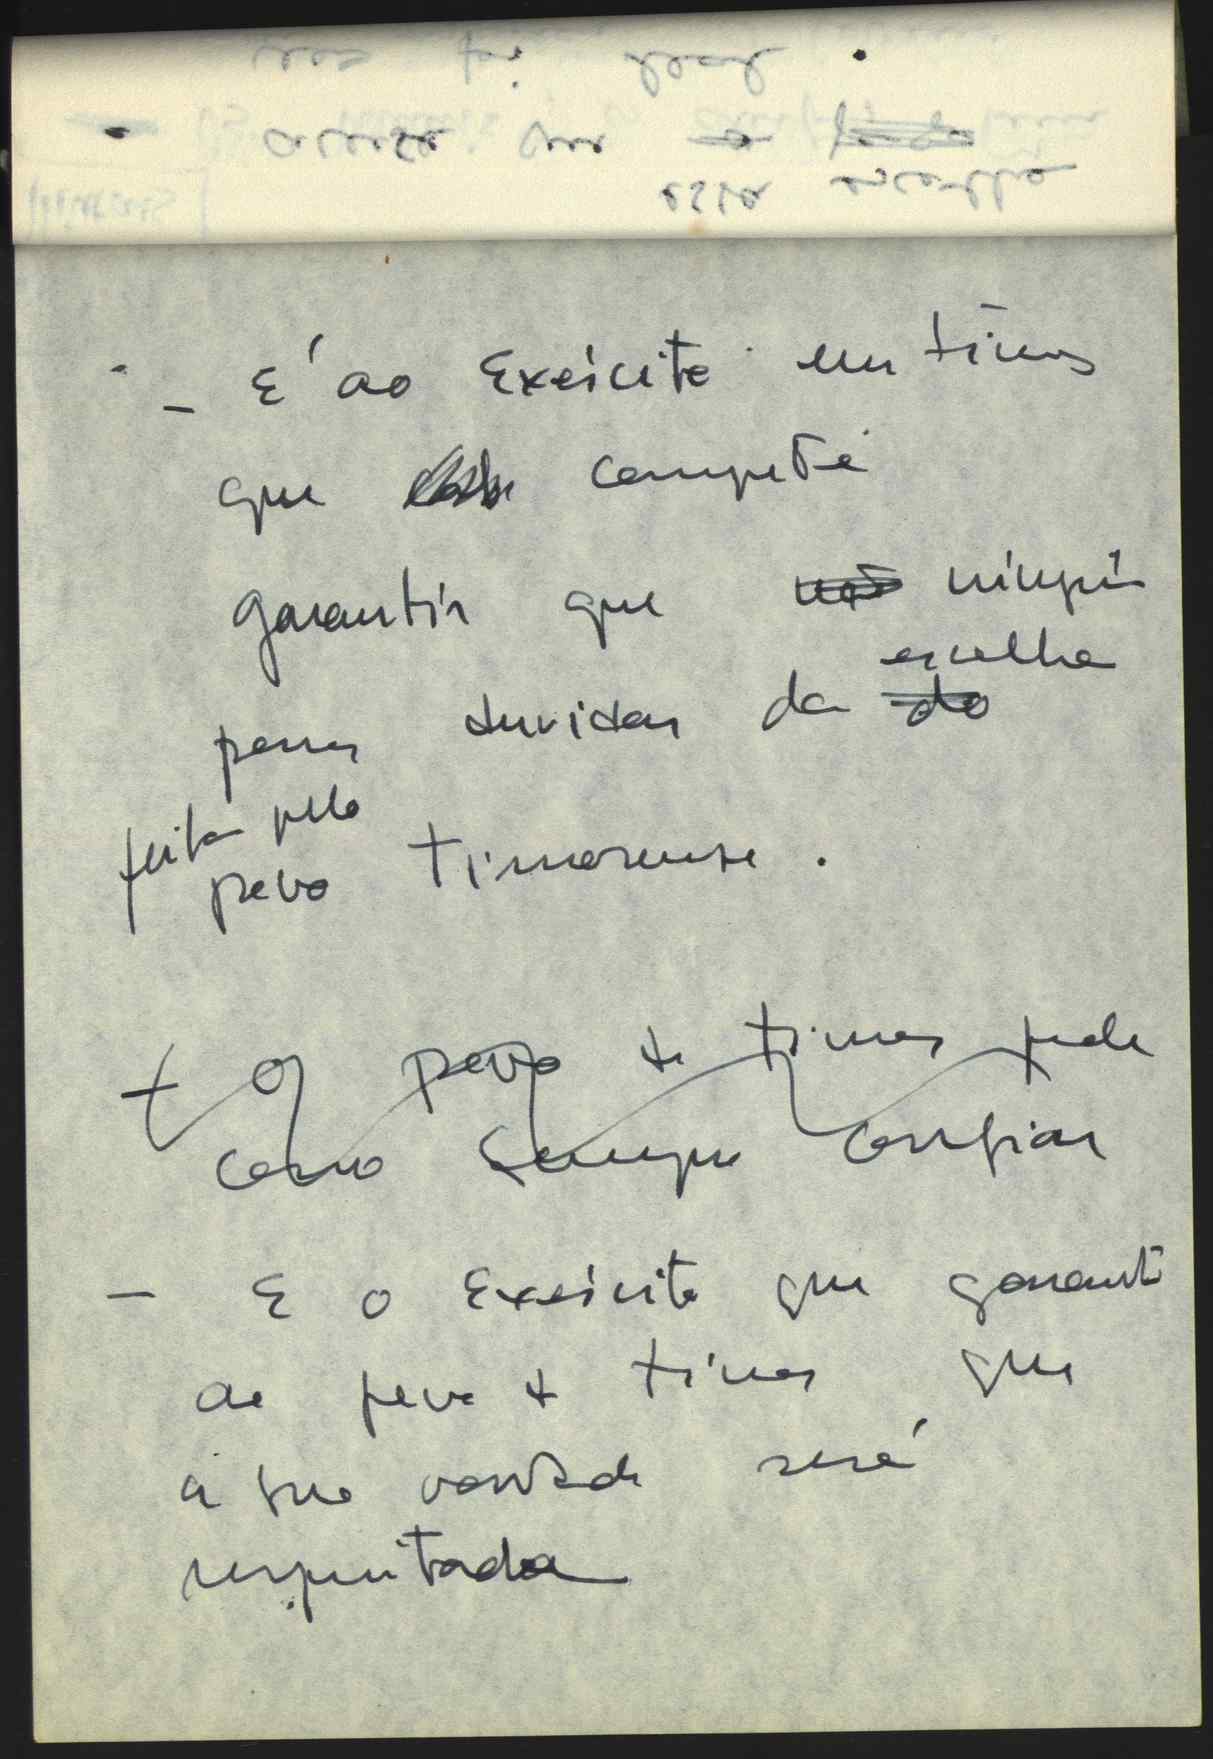 - É ao Exército em Timor
que compete
garantir que não ninguém
escolha
possa duvidar da do
feita pelo
povo timorense.
+ O povo de Timor pode
como sempre confiar
- É o Exército que garante
ao povo de Timor que
a sua vontade será
respeitada